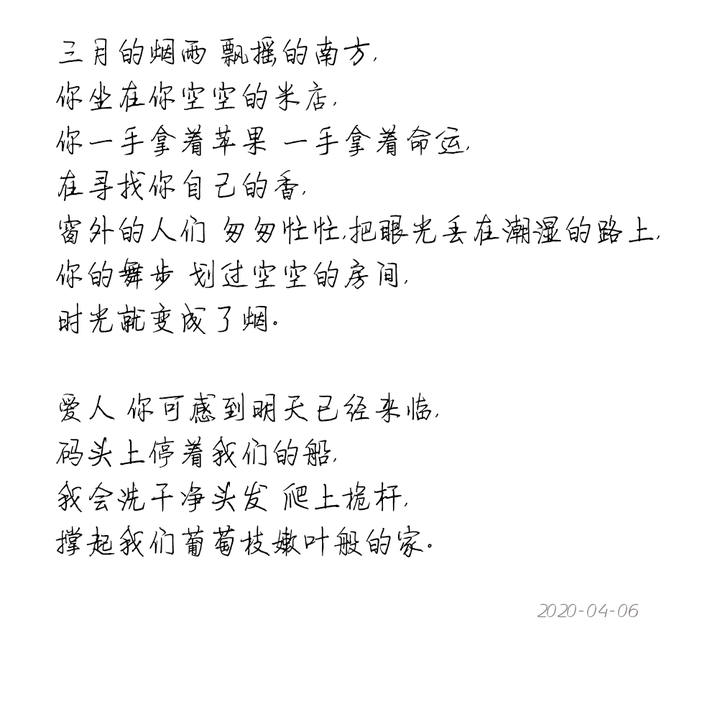 三月的烟雨 飘摇的南方,
你坐在你空空的米店,
你一手拿着苹果 一手拿着命运,
在寻找你自己的香,
窗外的人们 匆匆忙忙,把眼光丢在潮湿的路上,
你的舞步 划过空空的房间,
时光就变成了烟。
爱人 你可感到明天已经来临,
码头上停着我们的船,
我会洗干净头发 爬上桅杆,
撑起我们葡萄枝嫩叶般的家。
2020-04-06